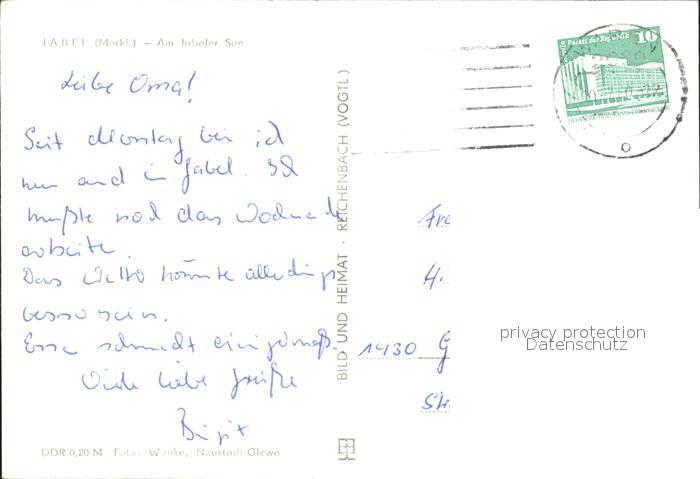 JABEL (Meckl.) – Am Jabeler See
Liebe Oma!
Seit Montag bin ich
nun auch in Jabel. Ich
mußte noch das Wochende
arbeiten.
Das Wetter könnte allerdings
besser sein.
Essen schmeckt einigermaß.
Viele liebe Grüße
Birgit
DDR 0,20 M Foto: Wanke, Neustadt-Glewe
BILD UND HEIMAT · REICHENBACH (VOGTL)
Berlin Palast der Republik 10
Fra
H.
1430 G
Str
privacy protection
Datenschutz